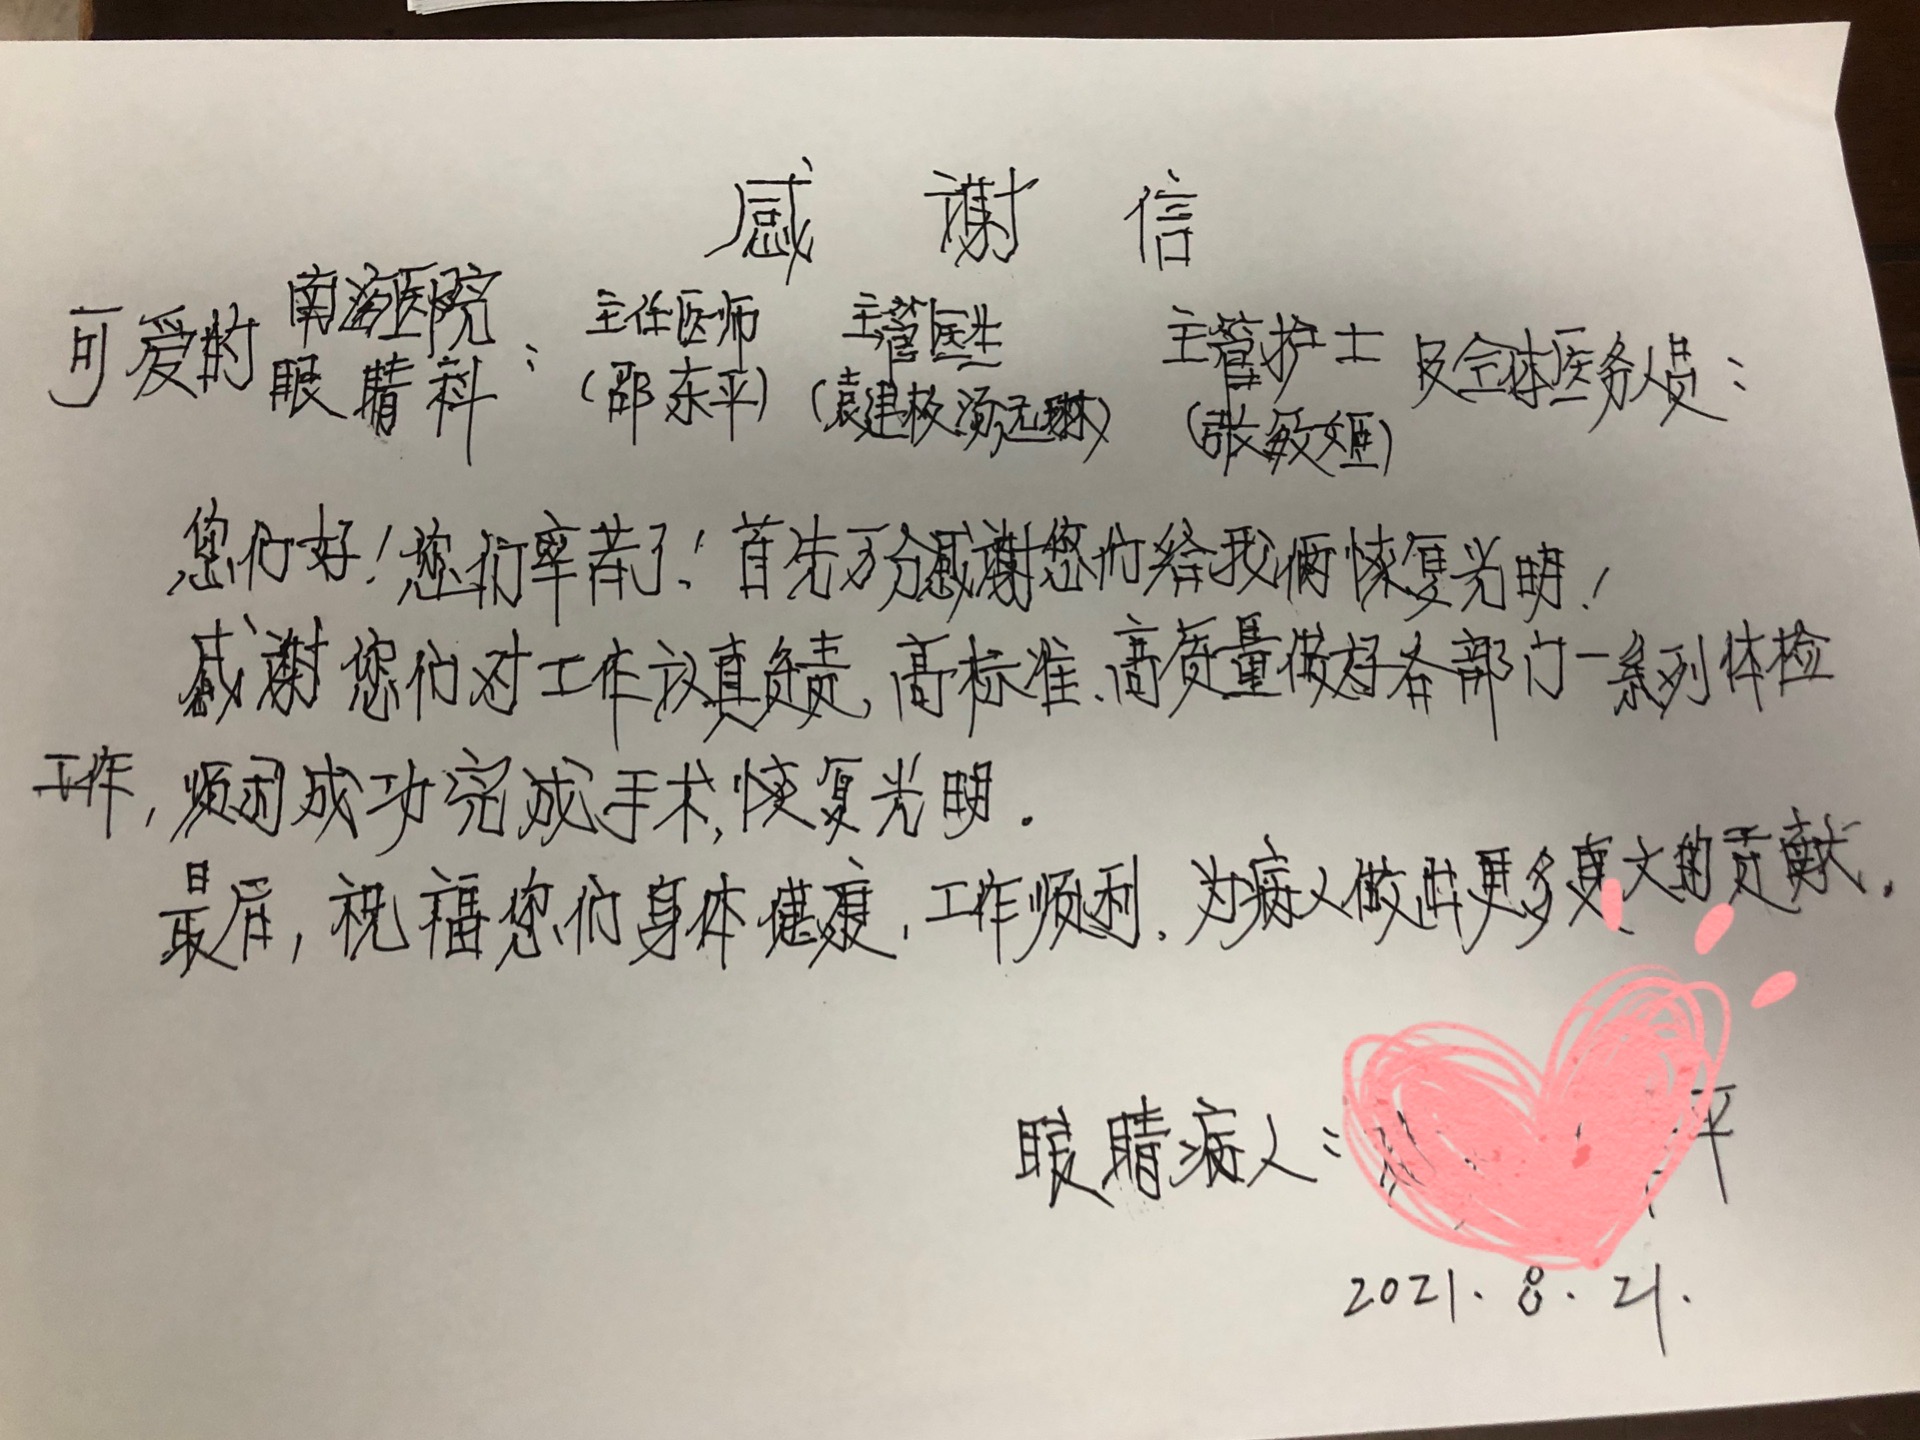 感谢信
可爱的南海医院眼睛科：主任医师（邵东平）主管医生（袁建极汤远琳）主管护士（张敏姬）及全体医务人员：
您们好！您们辛苦了！首先万分感谢您们给我俩恢复光明！
感谢您们对工作认真负责、高标准、高质量做好各部门一系列体检
工作，顺利成功完成手术，恢复光明。
最后，祝福您们身体健康，工作顺利，为病人做出更多更大的贡献。
眼睛病人：平
2021.8.21.